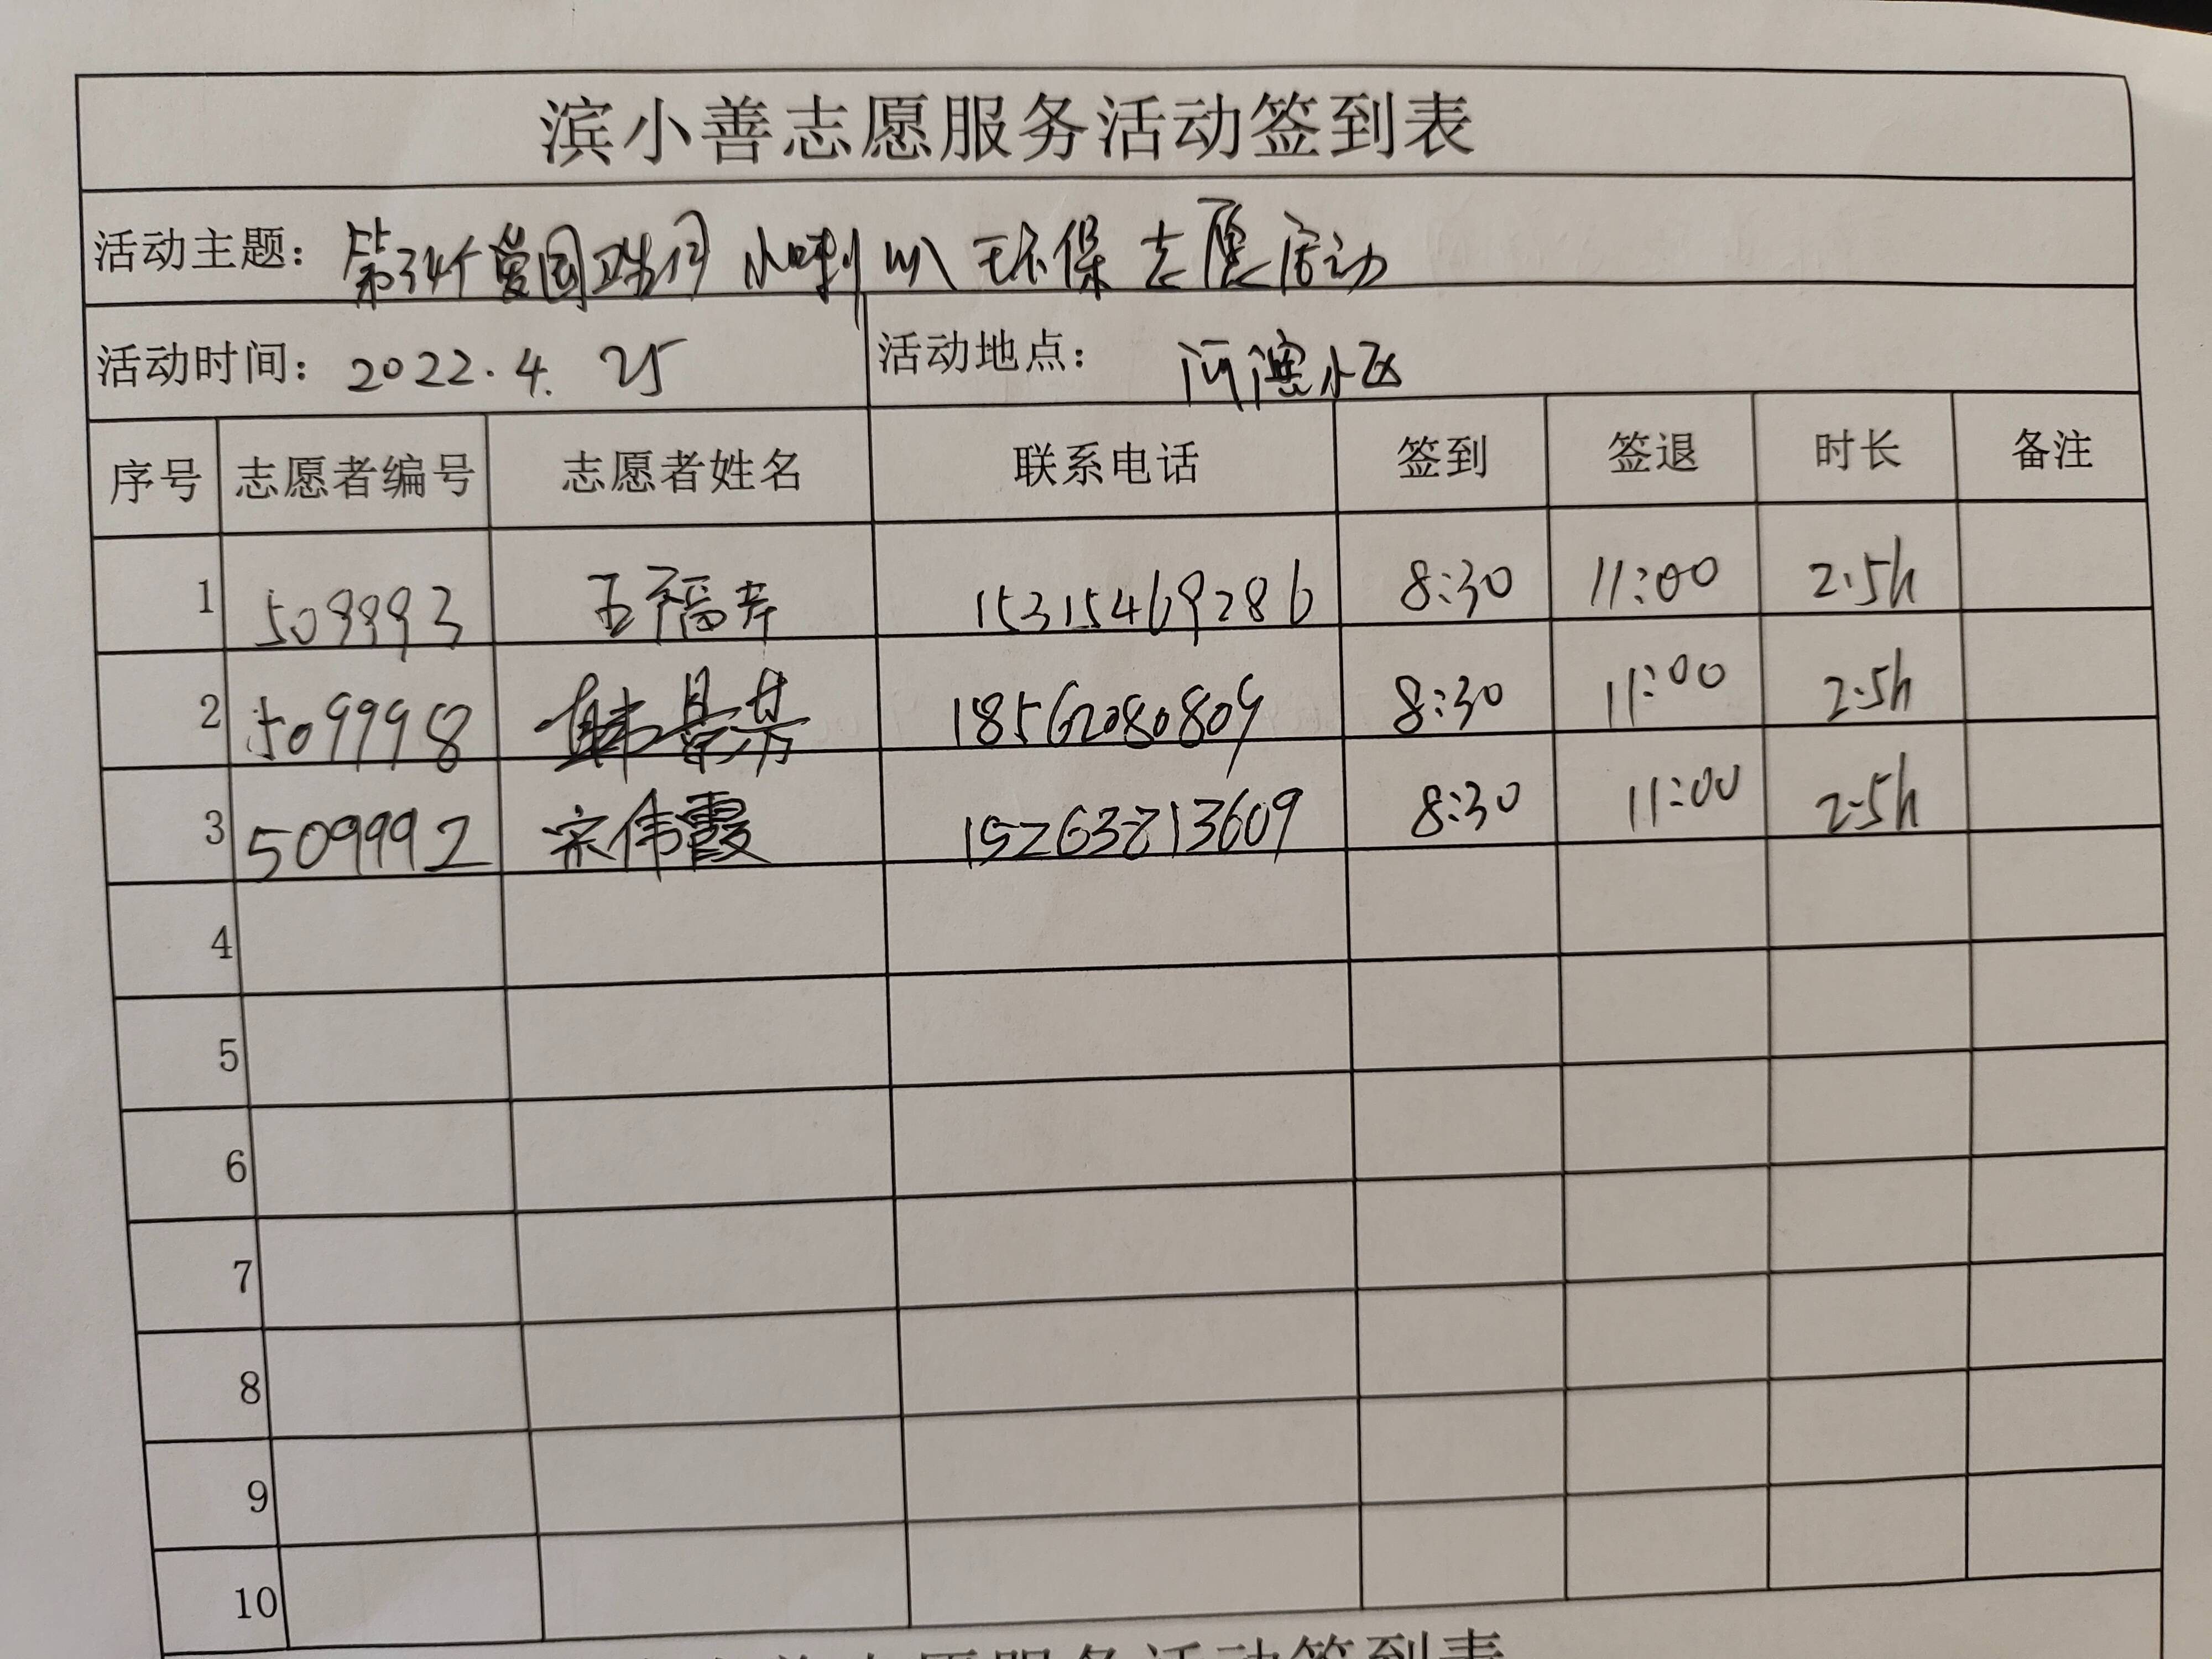 滨小善志愿服务活动签到表
活动主题: 第34个爱国卫生月 小喇叭 环保 志愿活动
活动时间: 2022.4.25 活动地点: 河滨小区
序号 志愿者编号 志愿者姓名 联系电话 签到 签退 时长 备注
1 509993 王福 15315469286 8:30 11:00 2.5h
2 509998 韩景芬 18562080809 8:30 11:00 2.5h
3 509992 宋伟霞 15263813609 8:30 11:00 2.5h
4
5
6
7
8
9
10
志愿服务活动签到表